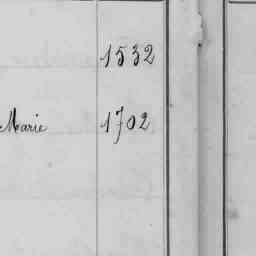 1532
Marie 1702